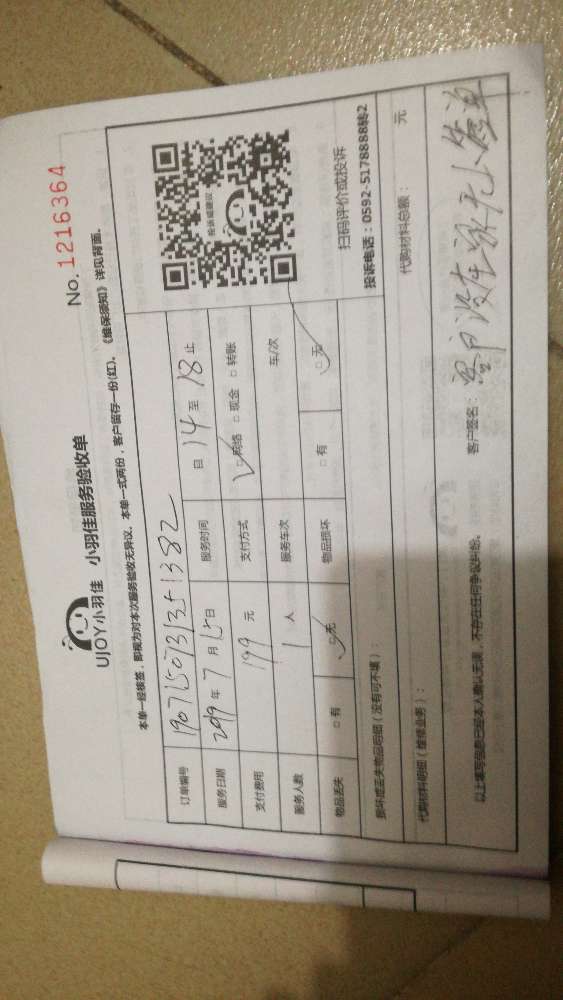 No. 1216364
UJOY小羽佳 小羽佳服务验收单
本单一经核签,即视为对本次服务验收无异议。本单一式两份,客户留存一份(红)。《维保须知》详见背面。
订单编号 190715073351382
服务日期 2019年7月15日 服务时间 自14至18止
支付费用 199元 支付方式 □网络 □现金 □转账
服务人数 1人 服务车次 车/次
物品丢失 □有 □无 物品损坏 □有 □无
投诉或建议
扫码评价或投诉
投诉电话:0592-5178888转2
损坏或丢失物品明细(没有可不填):
代购材料明细(维修业务): 代购材料总额: 元
以上填写信息已经本人确认无误,不存在任何争议纠纷。 客户签名: